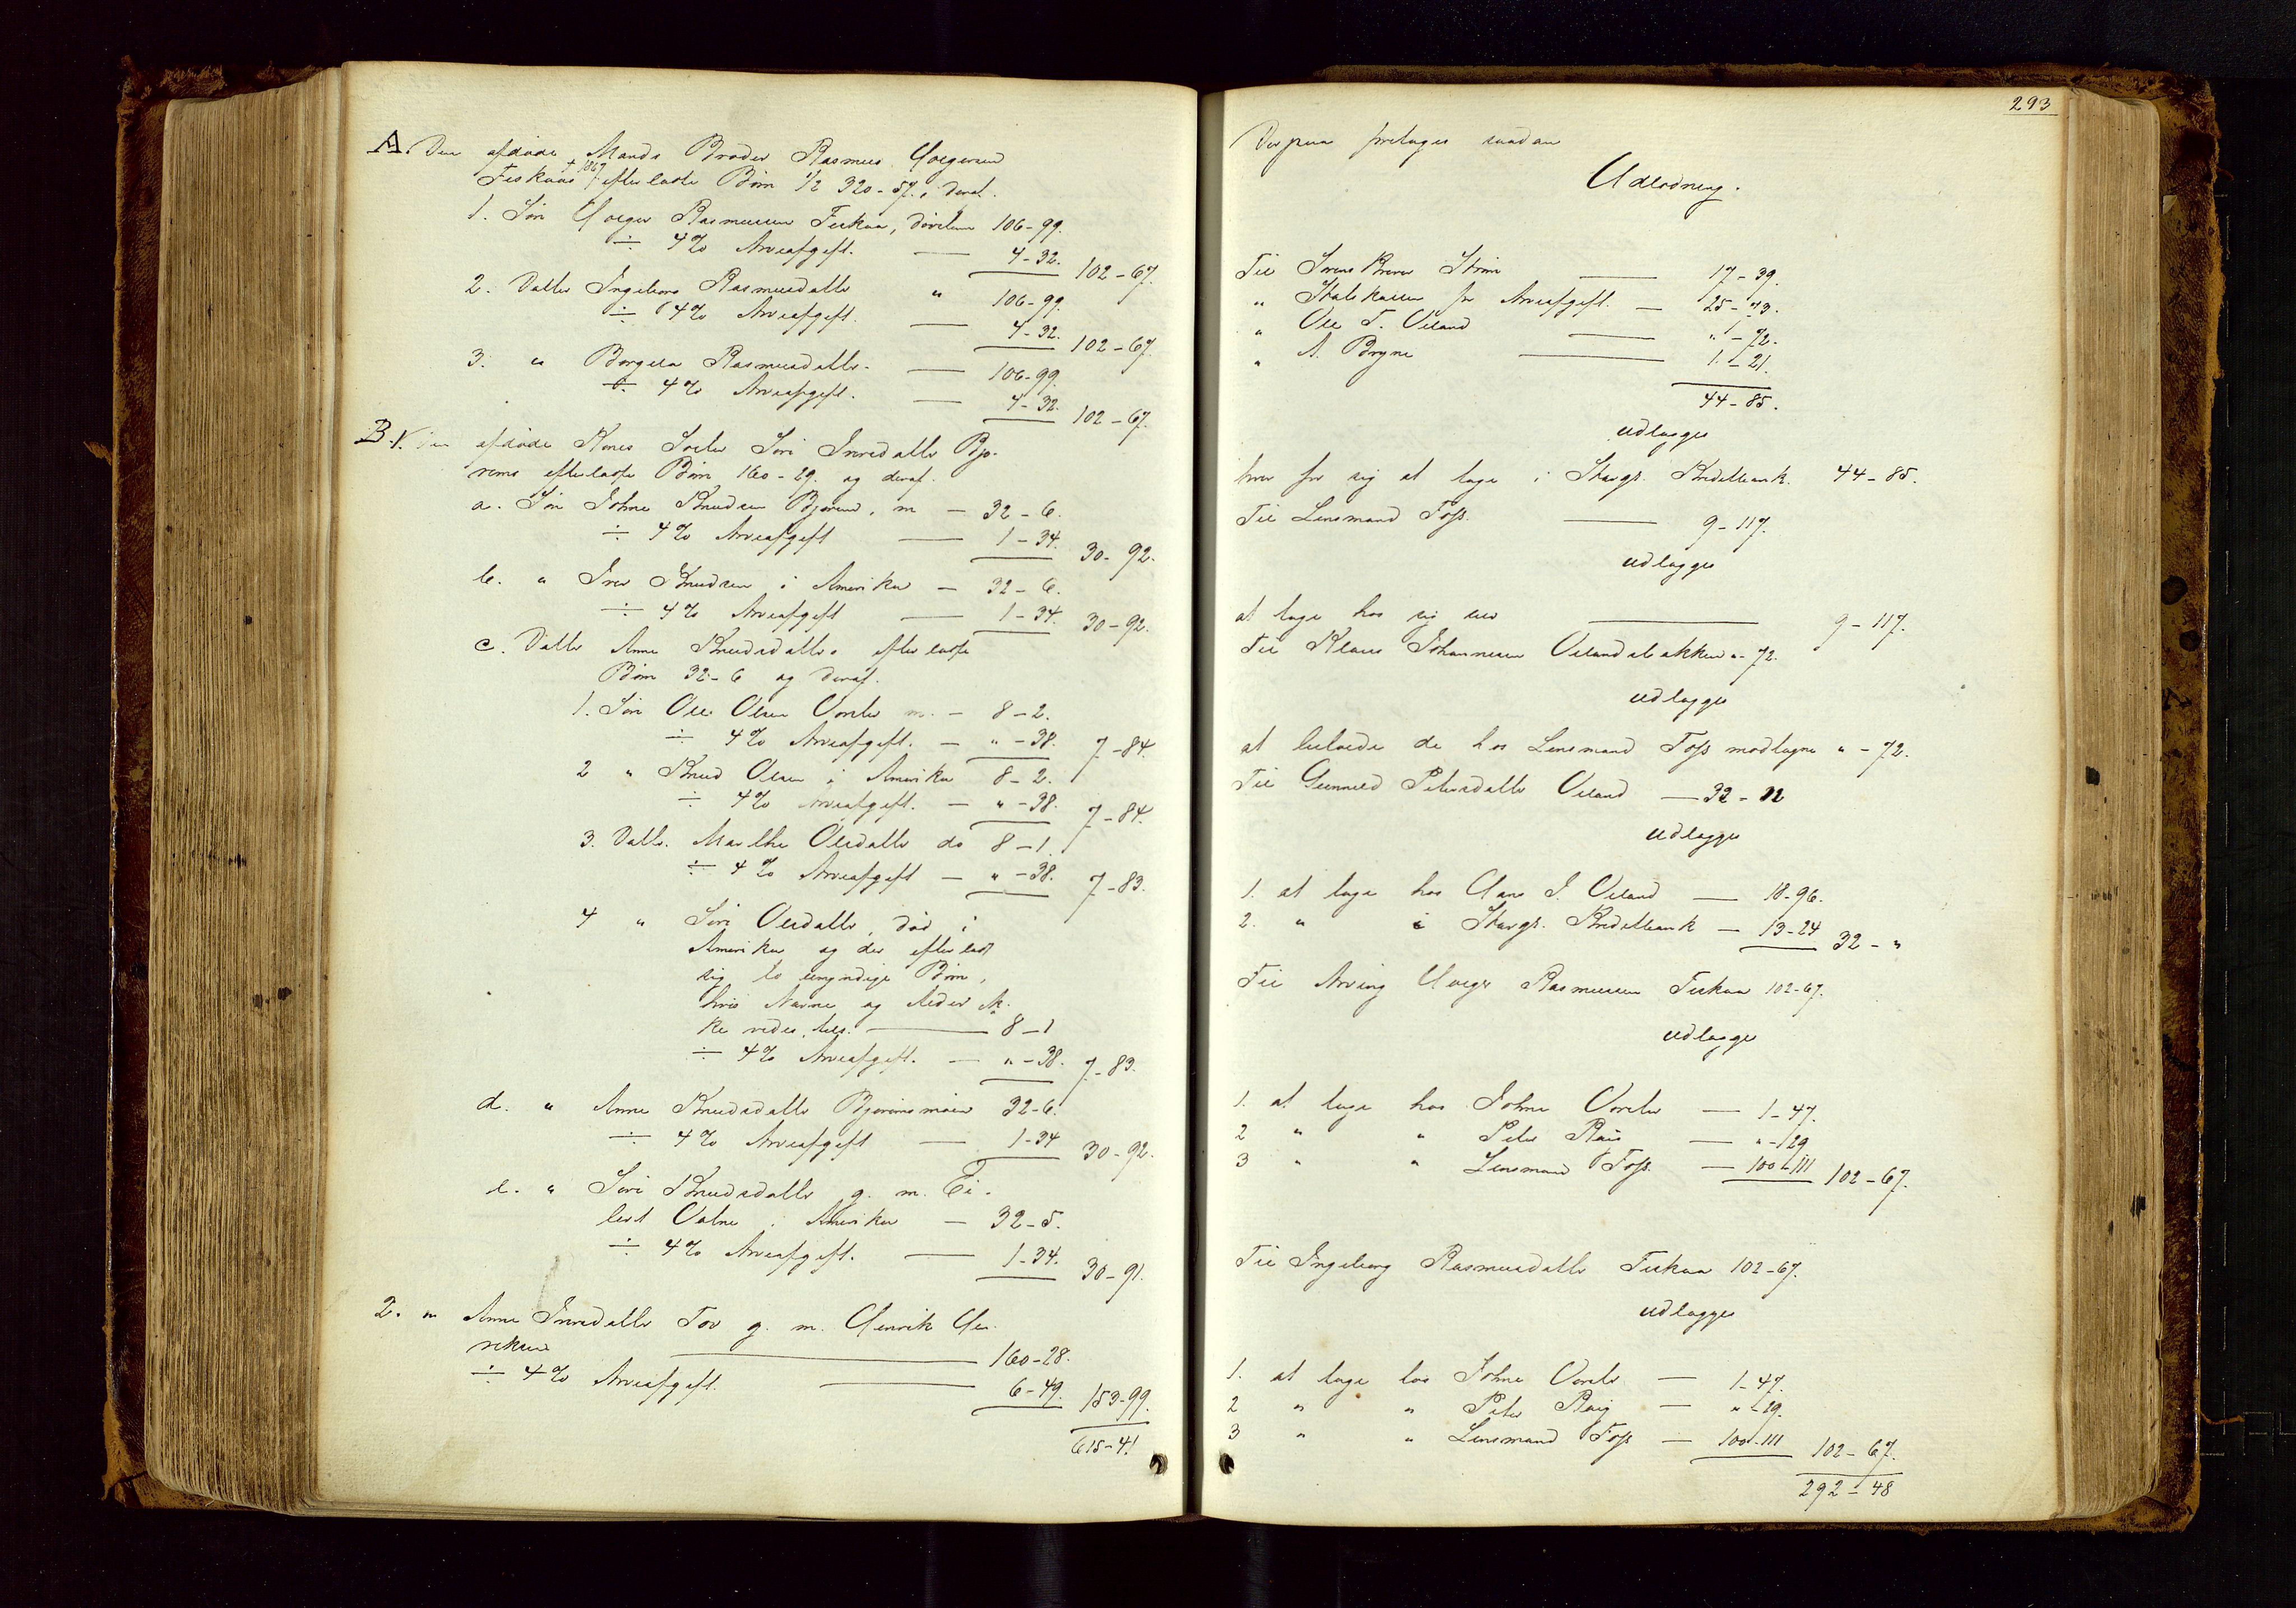 A. Den afdøde Mands Broder Rasmus Holgersen
Fiskaas + 1867 efterladte Børn 1/2 320-57, deraf.
1. Søn Holger Rasmussen Fiskaa, 106-99.
÷ 4% Arveafgift. — 4-32. 102-67.
2. Datter Ingeborg Rasmusdatter " 106-99.
÷ 4% Arveafgift. — 4-32. 102-67.
3. " Borgilla Rasmusdatter. — 106-99.
÷ 4% Arveafgift. — 4-32. 102-67.
B. 1. Den afdøde Kones Søster Siri Iversdatter Bjø-
rems efterladte Børn 160-29. og deraf.
a. Søn Johne Knudsen Bjørem, m — 32-6.
÷ 4% Arveafgift — 1-34. 30-92.
b. " Iver Knudsen i Amerika — 32-6.
÷ 4% Arveafgift — 1-34. 30-92.
c. Datter Anne Knudsdatters efterladte
Børn 32-6 og deraf.
1. Søn Ole Olsen m. — 8-2.
÷ 4% Arveafgift. — "-38. 7-84.
2 " Knud Olsen i Amerika 8-2.
÷ 4% Arveafgift. — "-38. 7-84.
3. Datter Marthe Olsdatter do 8-1.
÷ 4% Arveafgift — "-38. 7-83.
4 " Siri Olsdatter, død i
Amerika og der efterladt
sig to umyndige Børn,
hvis Navne og Alder ik-
ke vides, — 8-1
÷ 4% Arveafgift. — "-38. 7-83.
d. " Anne Knudsdatter 32-6.
÷ 4% Arveafgift — 1-34 30-92.
e. " Siri Knudsdatter g. m. Ei-
lert i Amerika — 32-5.
÷ 4% Arveafgift. — 1-34. 30-91.
2. " Anne Iversdatter Tov g. m. Henrik Hen-
riksen — 160-28.
÷ 4% Arveafgift. — 6-49. 153-99.
615-41
293
Derpaa foretages saadan
Udlodning.
Til Sorenskriver Strøm — 17-39.
" Statskassen for Arveafgift. — 25-73.
" Ole T. Øiland — "-72.
" A. Bryne — 1-21.
44-85.
udlægges
hver for sig at tage i Stavgr. Kreditbank. 44-85.
Til Lensmand Foss. — 9-117.
udlægges
at tage hos sig selv — 9-117.
Til Klaus Johannesen Øilandsbakken "-72.
udlægges
at beholde de hos Lensmand Foss modtagne "-72.
Til Gunnild Petersdatter Øiland — 32-"
udlægges
1. at tage hos Hans I. Øiland — 18-96.
2. " i Stavgr. Kreditbank — 13-24 32-"
Til Arving Holger Rasmussen Fiskaa 102-67.
udlægges
1. at tage hos Johne — 1-47.
2 " " Peter — "-29
3 " " Lensmand Foss. — 100-111 102-67.
Til Ingeborg Rasmusdatter Fiskaa 102-67.
udlægges
1. at tage hos Johne — 1-47.
2 " " Peter — "-29.
3 " " Lensmand Foss — 100-111 102-67.
292-48